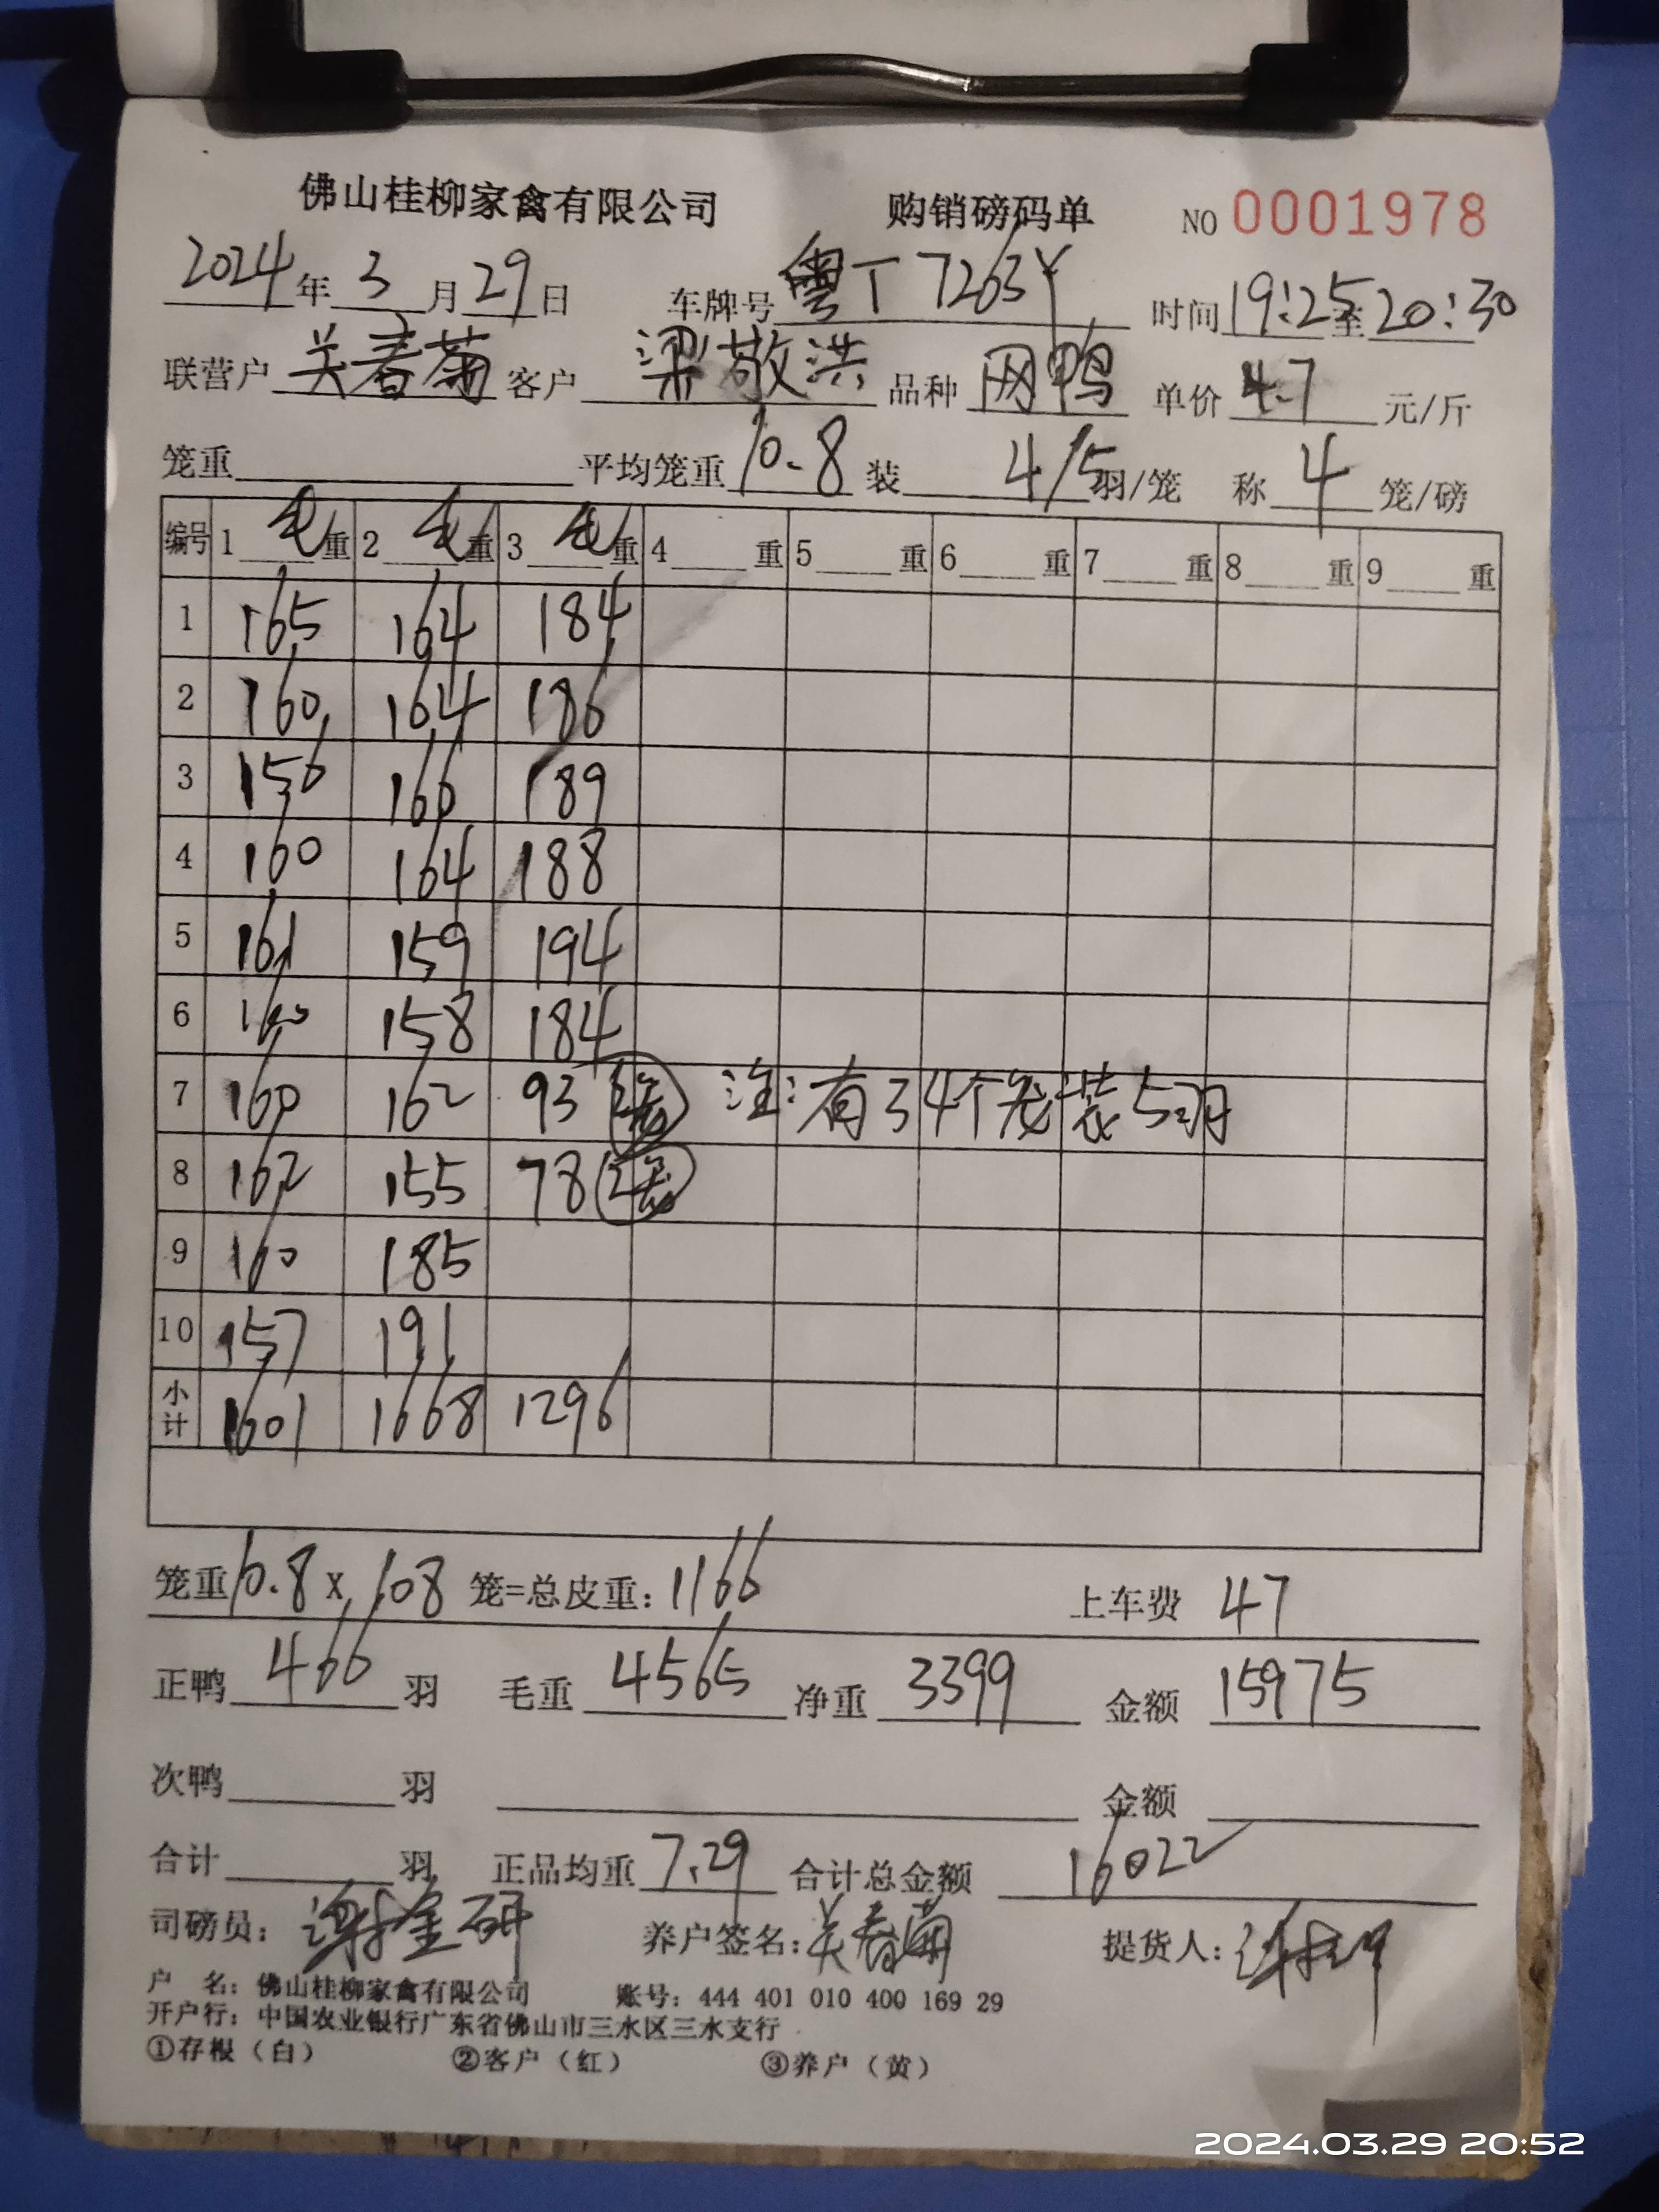 佛山桂柳家禽有限公司 购销磅码单 NO 0001978
2024年3月29日 车牌号 粤T 7263Y 时间 19:25至20:30
联营户 关春菊 客户 梁敬洪 品种 网鸭 单价 4.7 元/斤
笼重 平均笼重 10.8 装 4/5 羽/笼 称 4 笼/磅
编号 1 毛 重 2 毛 重 3 毛 重 4 重 5 重 6 重 7 重 8 重 9 重
1 165 164 184
2 160 164 186
3 156 166 189
4 160 164 188
5 161 159 194
6 160 158 184
7 160 162 93 (2笼) 注:有34个笼装5羽
8 162 155 78 (2笼)
9 160 185
10 157 191
小计 1601 1668 1296
笼重 10.8 x 108 笼=总皮重: 1166 上车费 47
正鸭 466 羽 毛重 4565 净重 3399 金额 15975
次鸭 羽 金额
合计 羽 正品均重 7.29 合计总金额 16022
司磅员: 谢金研 养户签名: 关春菊 提货人:
户 名: 佛山桂柳家禽有限公司 账号: 444 401 010 400 169 29
开户行: 中国农业银行广东省佛山市三水区三水支行
①存根（白） ②客户（红） ③养户（黄）
2024.03.29 20:52